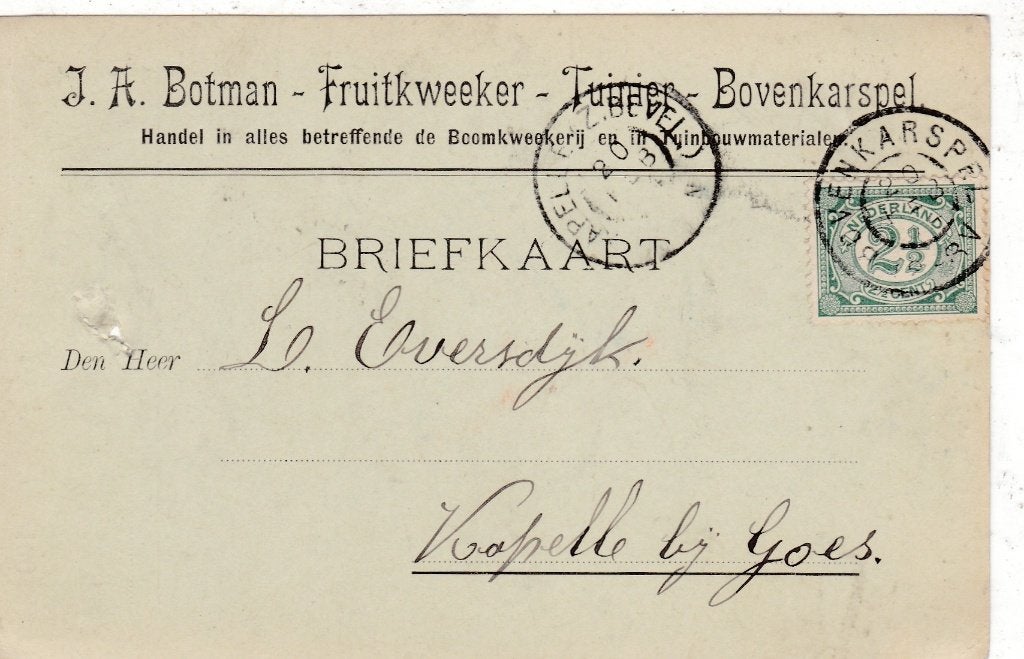 J. A. Botman - Fruitkweeker - Tuinier - Bovenkarspel.
Handel in alles betreffende de Boomkweekerij en in Tuinbouwmaterialen.
KAPELLE (Z:BEVEL.)
BOVENKARSPEL
NEDERLAND
2½
(2½ CENT)
BRIEFKAART
Den Heer L. Eversdijk.
Kapelle bij Goes.